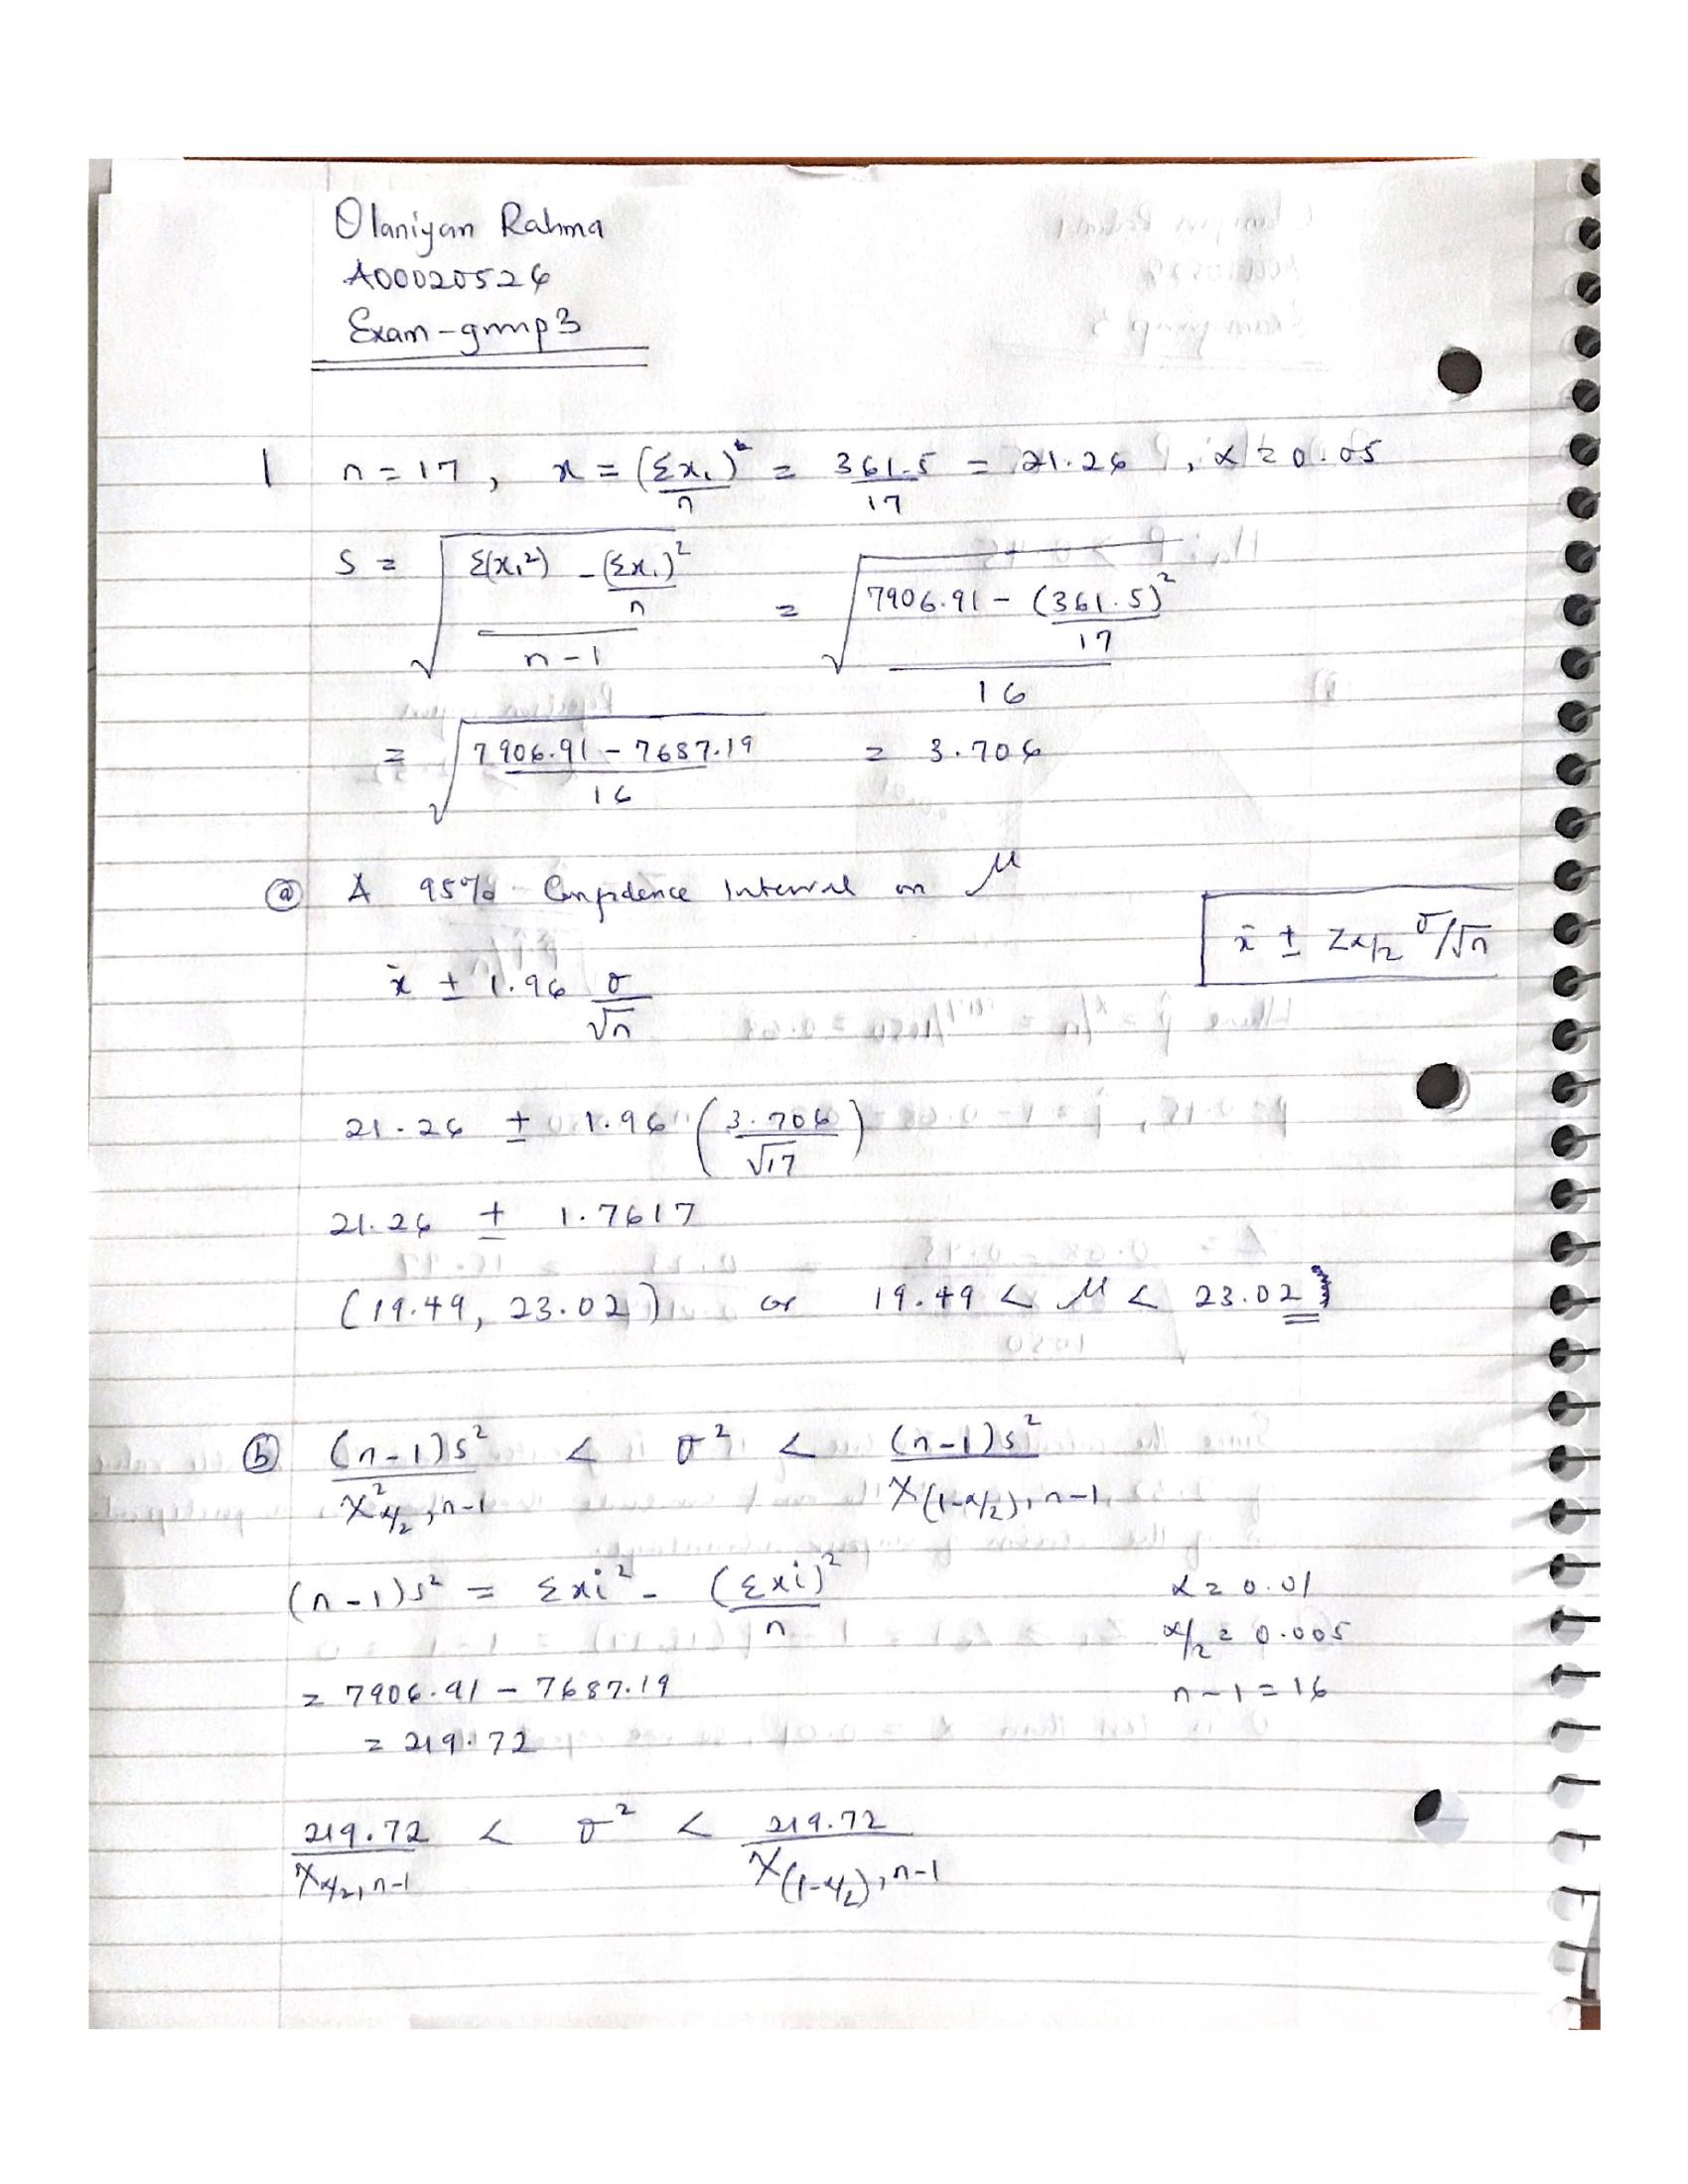 Olaniyan Rahma
A00020526
Exam-group 3
1 n = 17, x = (Σx₁)² / n = 361.5 / 17 = 21.26, α = 0.05
S = √((Σ(x₁²) - (Σx₁)² / n) / (n-1)) = √((7906.91 - (361.5)² / 17) / 16)
= √((7906.91 - 7687.19) / 16) = 3.706
ⓐ A 95% Confidence Interval on μ
x̄ ± Zα/2 σ/√n
x̄ ± 1.96 σ/√n
21.26 ± 1.96 (3.706 / √17)
21.26 ± 1.7617
(19.49, 23.02) or 19.49 < μ < 23.02
ⓑ (n-1)s² / X²α/2, n-1 < σ² < (n-1)s² / X(1-α/2), n-1
(n-1)s² = Σxi² - (Σxi)² / n
α = 0.01
α/2 = 0.005
= 7906.91 - 7687.19
n-1 = 16
= 219.72
219.72 / Xα/2, n-1 < σ² < 219.72 / X(1-α/2), n-1